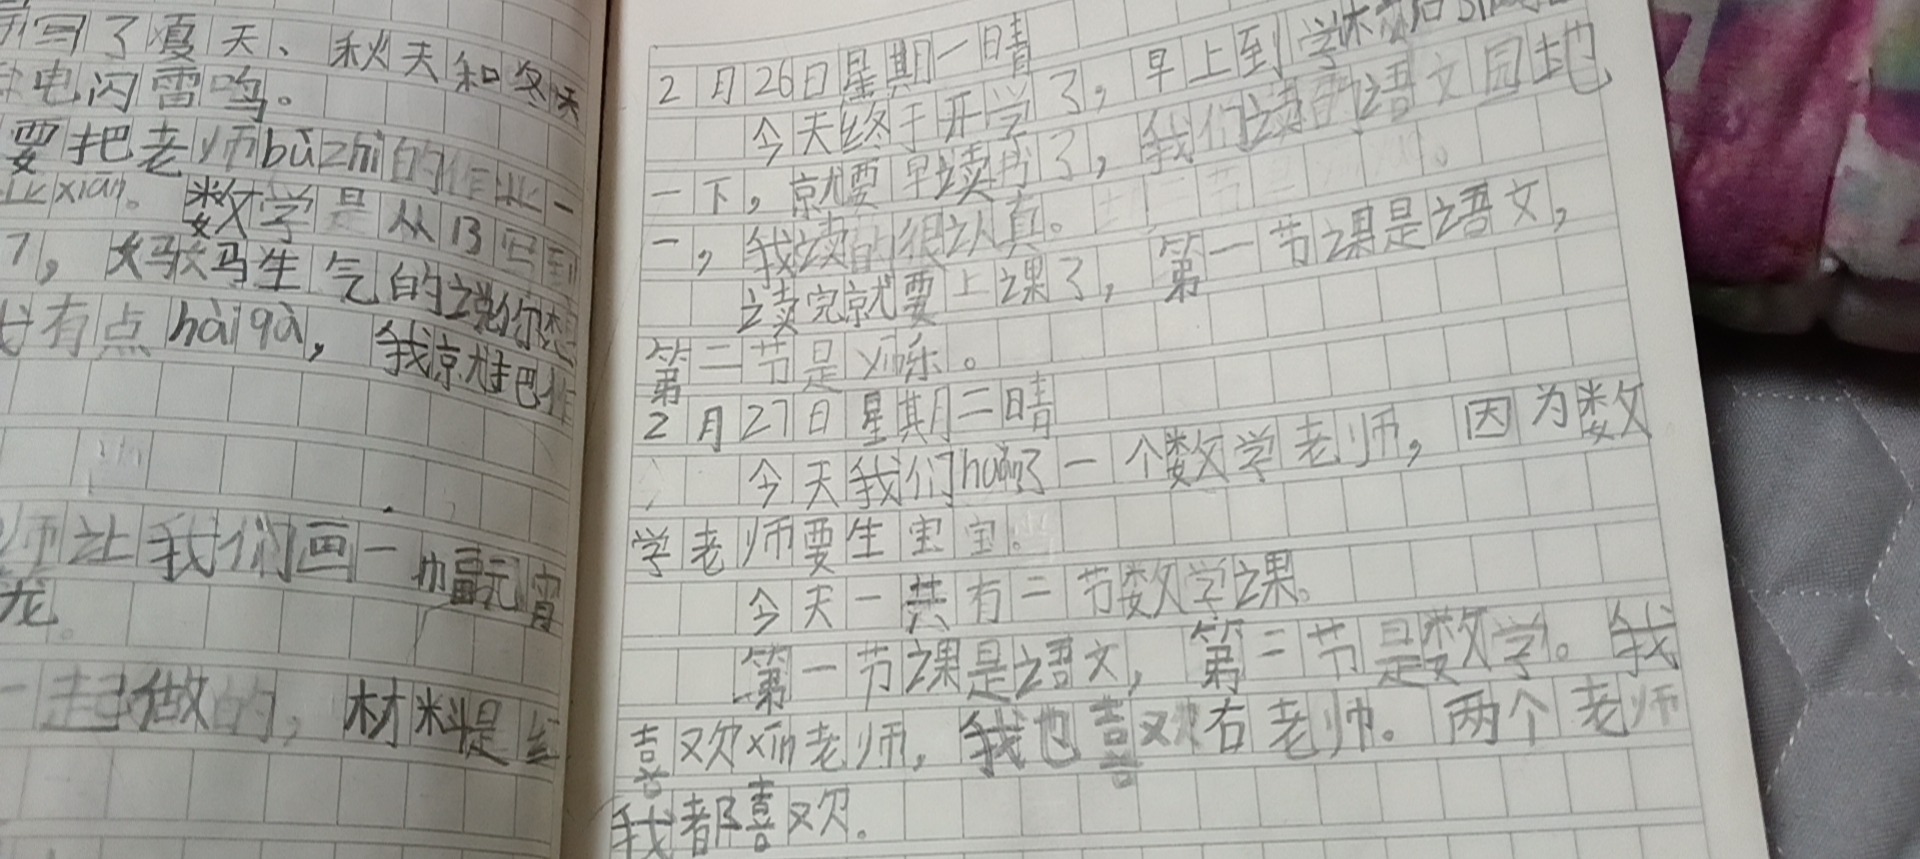 写了夏天、秋天和冬天
电闪雷鸣。
要把老师bùzhì的作业一
业xiàn。数学是从13写到
7，妈妈生气的说你想
我有点hàipà，我就把作
师让我们画一幅元宵
龙。
一起做的，材料是红
2月26日星期一晴
今天终于开学了，早上到学休息
一下，就要早读书了，我们读的语文园地
一，我读的很认真。
读完就要上课了，第一节课是语文，
第二节是yīn乐。
2月27日星期二晴
今天我们huàn了一个数学老师，因为数
学老师要生宝宝。
今天一共有二节数学课。
第一节课是语文，第二节是数学。我
喜欢xīn老师，我也喜欢右老师。两个老师
我都喜欢。